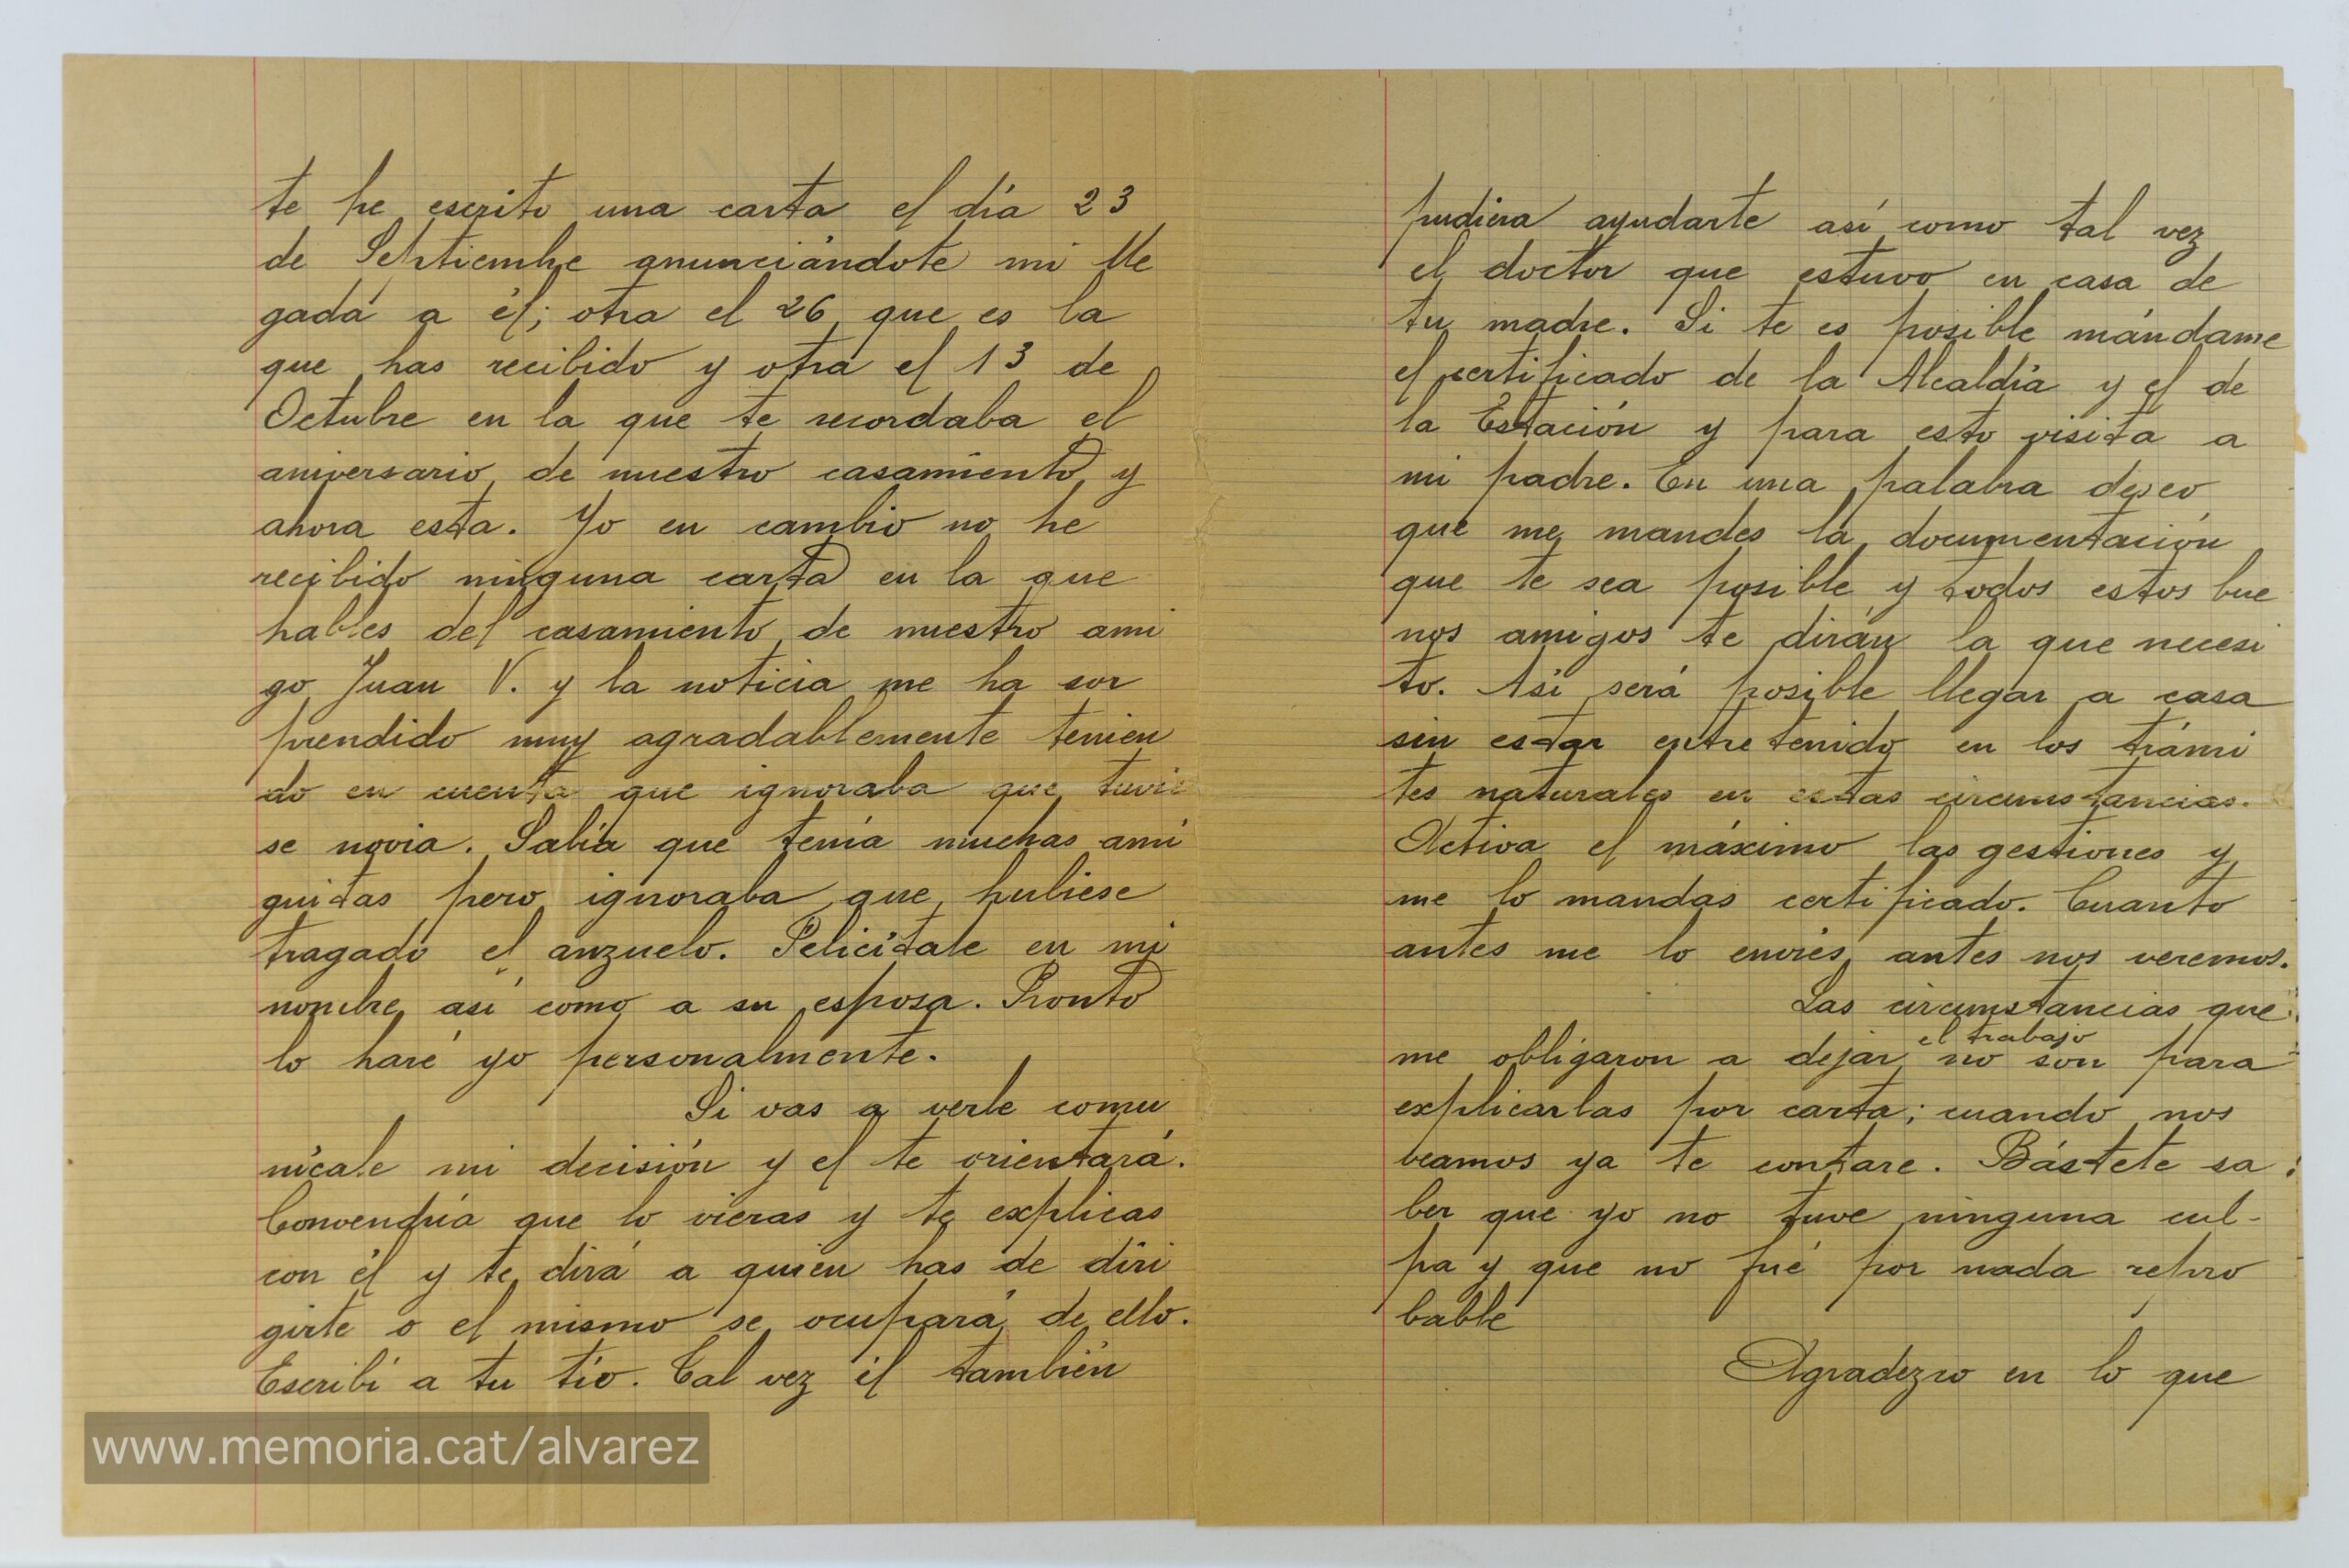 te he escrito una carta el día 23
de Septiembre anunciándote mi lle
gada a él; otra el 26 que es la
que has recibido y otra el 13 de
Octubre en la que te recordaba el
aniversario de nuestro casamiento y
ahora esta. Yo en cambio no he
recibido ninguna carta en la que
hables del casamiento de nuestro ami
go Juan V. y la noticia me ha sor
prendido muy agradablemente tenien
do en cuenta que ignoraba que tuvie
se novia. Sabía que tenía muchas ami
guitas pero ignoraba que hubiese
tragado el anzuelo. Felicítale en mi
nombre así como a su esposa. Pronto
lo haré yo personalmente.
Si vas a verle comu
nícale mi decisión y el te orientará.
Convendría que lo vieras y te explicas
con él y te dirá a quien has de diri
girte o el mismo se ocupará de ello.
Escribí a tu tío. Tal vez él también
pudiera ayudarte así como tal vez
el doctor que estuvo en casa de
tu madre. Si te es posible mándame
el certificado de la Alcaldía y el de
la Estación y para esto visita a
mi padre. En una palabra deseo
que me mandes la documentación
que te sea posible y todos estos bue
nos amigos te dirán la que necesi
to. Así será posible llegar a casa
sin estar entretenido en los trámi
tes naturales en estas circunstancias.
Activa el máximo las gestiones y
me lo mandas certificado. Cuanto
antes me lo envies, antes nos veremos.
Las circumstancias que
me obligaron a dejar el trabajo no son para
explicarlas por carta; cuando nos
beamos ya te contare. Bástete sa
ber que yo no tuve ninguna cul-
pa y que no fué por nada repro
bable
Agradezco en lo que
www.memoria.cat/alvarez